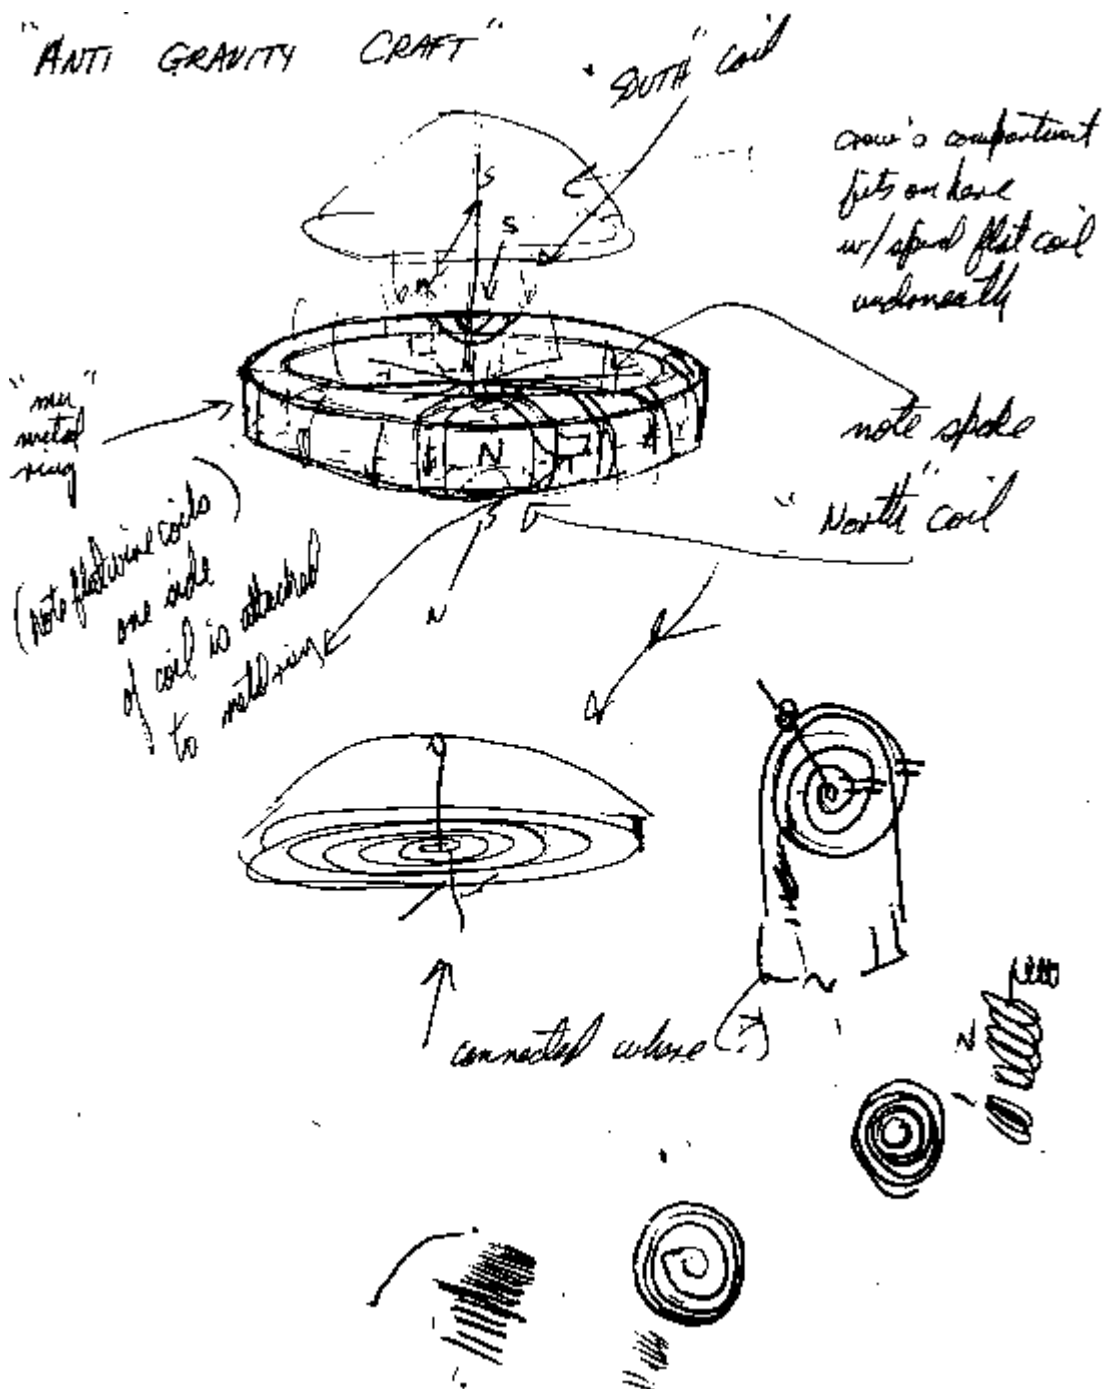 "ANTI GRAVITY CRAFT"
"SOUTH" coil
crew's compartment
fits on here
w/ spiral flat coil
underneath
S
S
N
"mu"
metal
ring
note spoke
N
"North" coil
S
N
(note flat wire coils)
one side
of coil is attached
to metal ring
connected where (?)
N